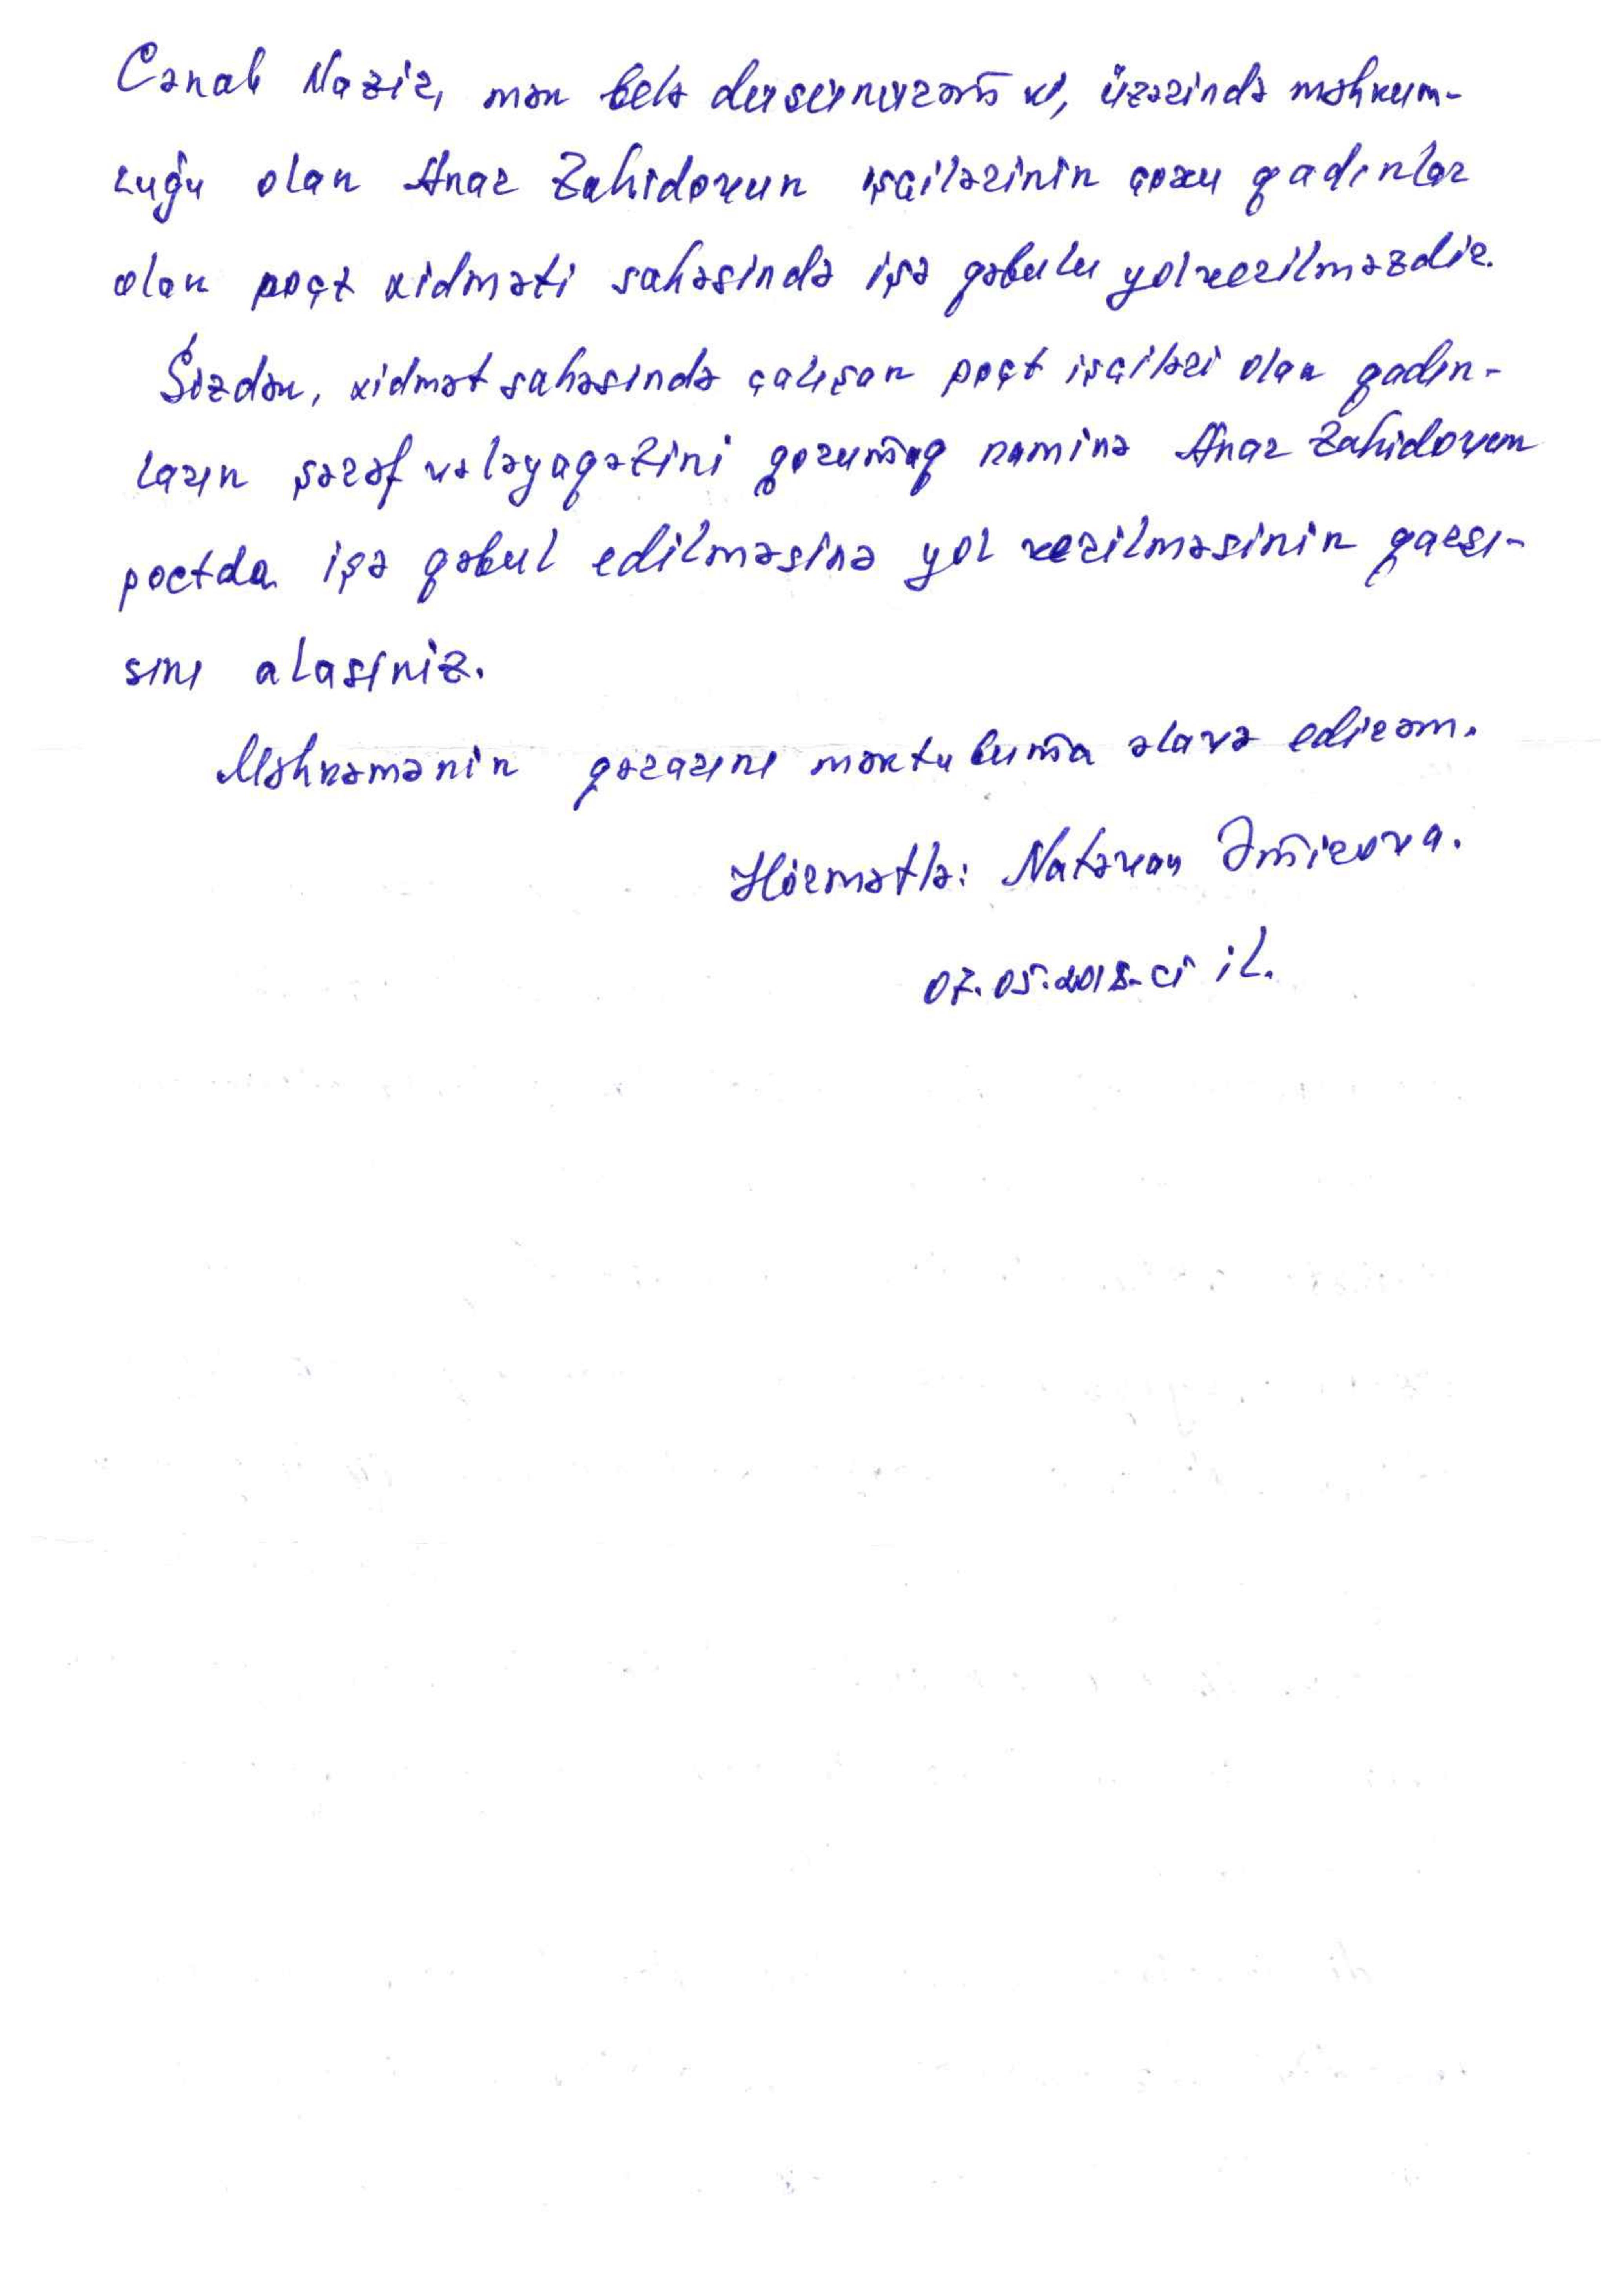 Cənab Nazir, mən belə düşünürəm ki, üzərində məhkum-
luğu olan Anar Zahidovun işçilərinin çoxu qadınlar
olan poçt xidməti sahəsində işə qəbulu yolverilməzdir.
Sizdən, xidmət sahəsində çalışan poçt işçiləri olan qadın-
ların şərəf və ləyaqətini qorumaq naminə Anar Zahidovun
poctda işə qəbul edilməsinə yol verilməsinin qarşı-
sını alasınız.
Məhkəmənin qərarını məktubuma əlavə edirəm.
Hörmətlə: Natəvan Əmirova.
07.05.2018-ci il.